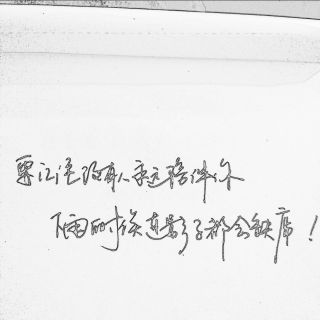 要记住没有人永远陪伴你
下雨的时候连影子都会缺席！